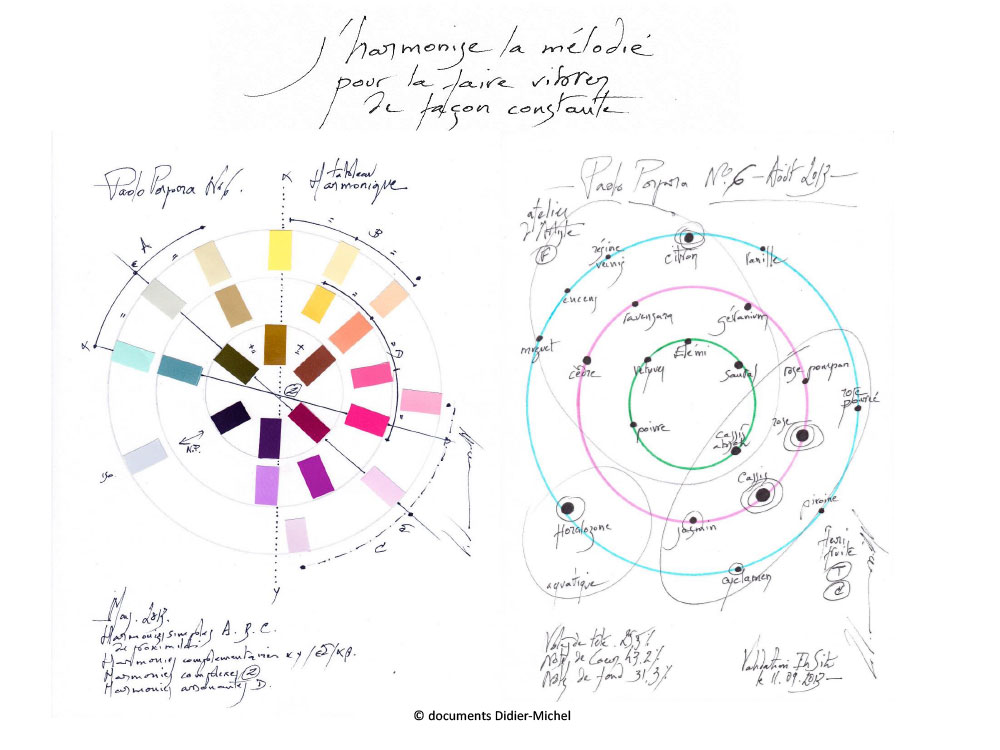 j'harmonise la mélodie
pour la faire vibrer
de façon constante
Paolo Porpora No.6.
tableau
Harmonique
A
B
D
Z
N.P.
C
Y
May. 2013.
Harmonies simples A. B. C.
de proximité
Harmonies complémentaires
Harmonies complexes Z
Harmonies D.
Paolo Porpora No.6 - Août 2013
atelier
F
citron
vanille
encens
muguet
ravensara
géranium
Elémi
cèdre
vétyver
Santal
rose pompon
rose
poivre
Cassis
absolu
rose
Cassis
pivoine
Floralozone
jasmin
aquatique
cyclamen
fruité
T
C
Note de tête 25,5%
Note de Coeur 43,2%
Note de fond 31,3%
Validation
le 11.09.2013
© documents Didier-Michel